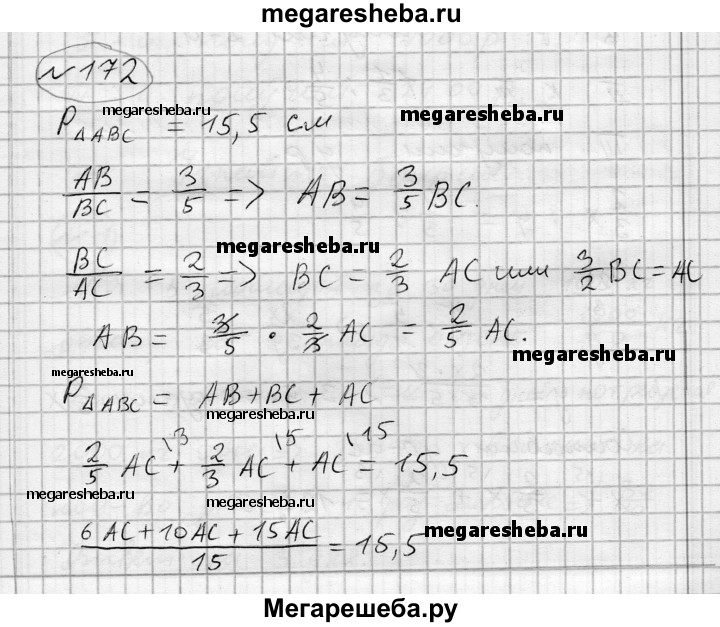 megaresheba.ru
№172
megaresheba.ru
P△ABC = 15,5 см megaresheba.ru
AB/BC = 3/5 => AB = 3/5 BC.
megaresheba.ru
BC/AC = 2/3 => BC = 2/3 AC или 3/2 BC = AC
AB = 3/5 · 2/3 AC = 2/5 AC.
megaresheba.ru
megaresheba.ru
P△ABC = AB + BC + AC
megaresheba.ru
2/5 AC \3 + 2/3 AC \5 + AC \15 = 15,5
megaresheba.ru megaresheba.ru
(6AC + 10AC + 15AC)/15 = 15,5 megaresheba.ru
Мегарешеба.ру